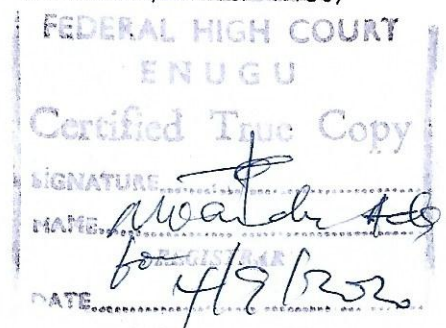 FEDERAL HIGH COURT
ENUGU
Certified True Copy
SIGNATURE
NAME
for REGISTRAR
4/9/2020
DATE